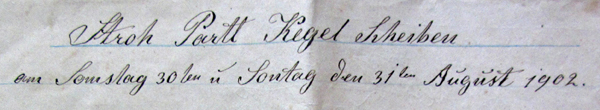 Stroh Partl Kegel Scheiben
am Samstag 30ten u Sontag den 31ten August 1902.